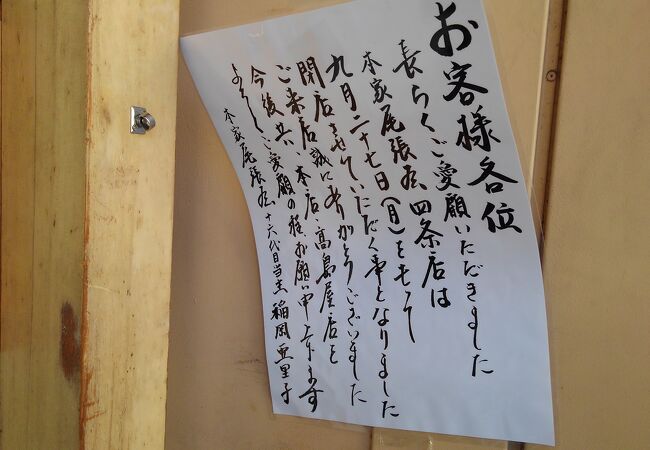 お客様各位
長らくご愛顧いただきました
本家尾張屋 四条店は
九月二十七日(月)をもって
閉店させていただく事となりました
ご来店、誠にありがとうございました
今後共、本店、高島屋店を
よろしくご愛顧の程、お願い申上げます
本家尾張屋 十六代目当主 稲岡亜里子